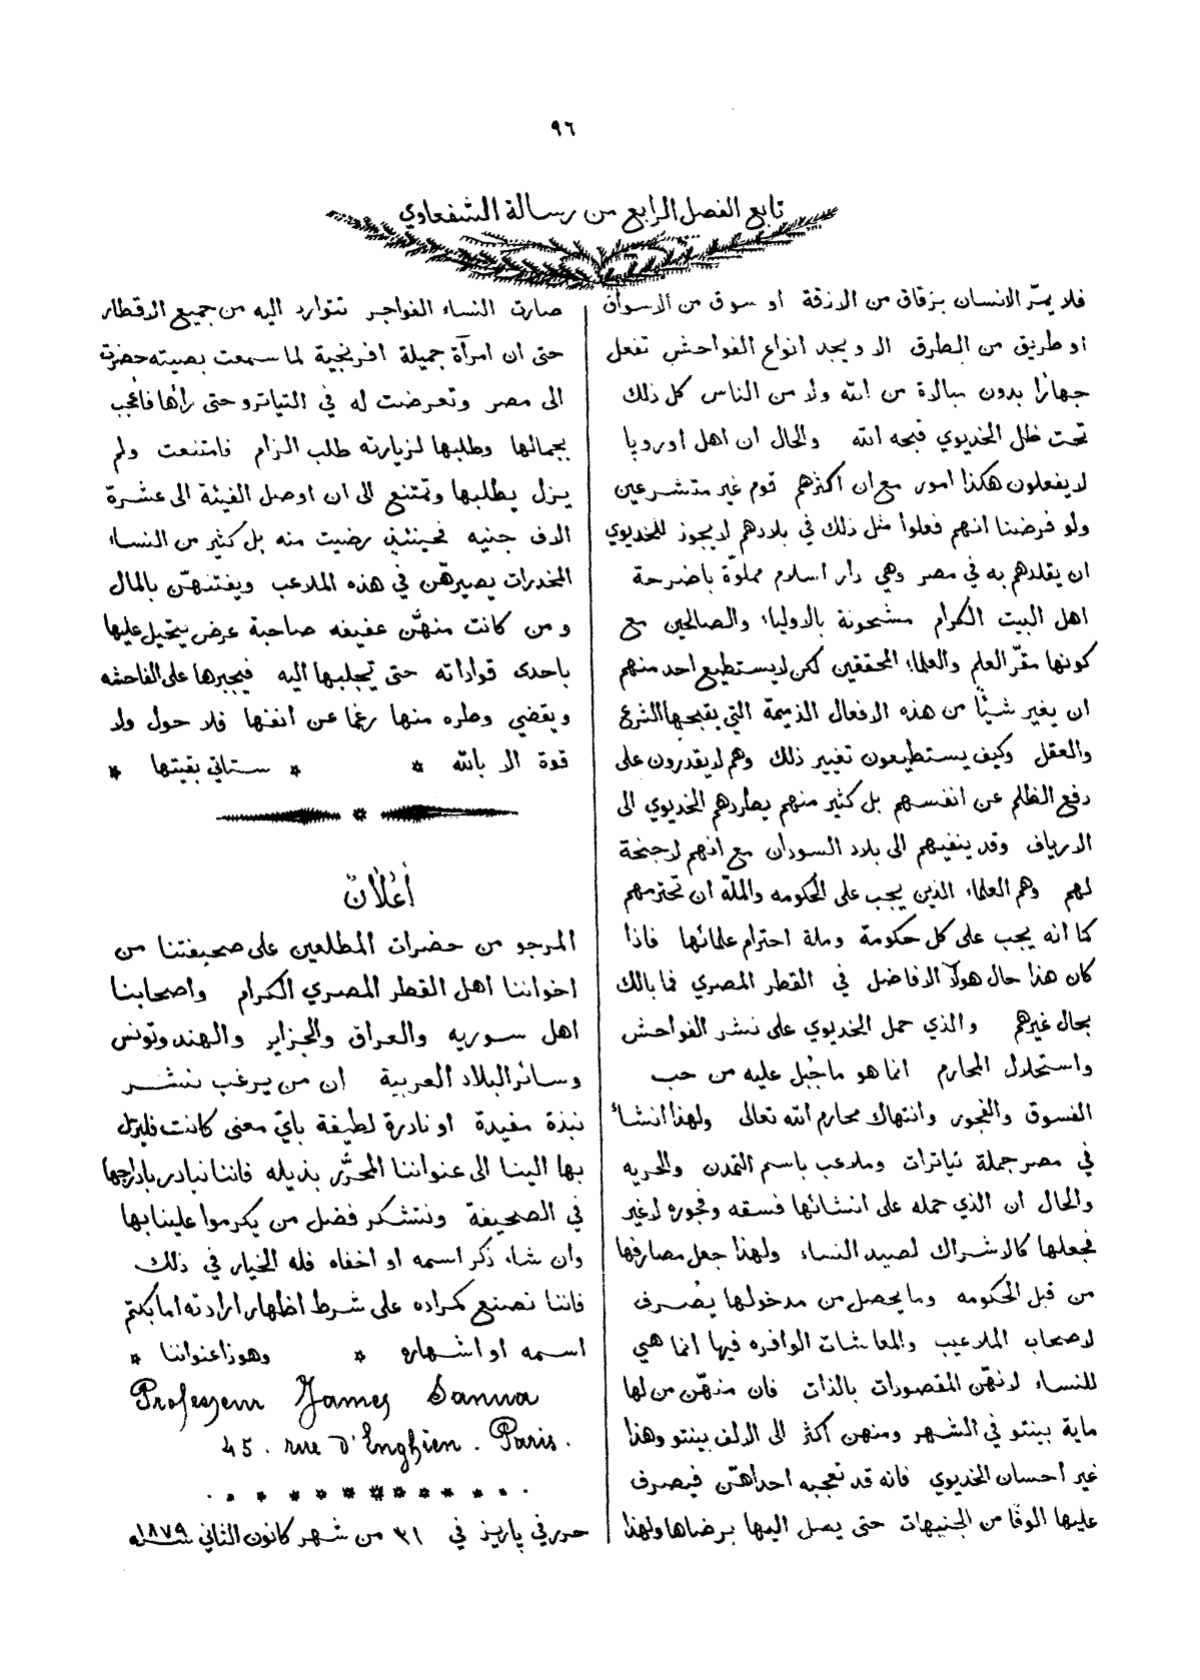 ٩٦
تابع الفصل الرابع من رسالة الشفعاوي
فلا يمرّ الانسان بزقاق من الازقة او سوق من الاسواق
او طريق من الطرق الا ويجد انواع الفواحش تفعل
جهارًا بدون مبالاة من الله ولا من الناس كل ذلك
تحت ظل الخديوي قبحه الله والحال ان اهل اوروپا
لا يفعلون هكذا امور مع ان اكثرهم قوم غير متشرعين
ولو فرضنا انهم فعلوا مثل ذلك في بلادهم لا يجوز للخديوي
ان يقلدهم به في مصر وهي دار اسلام مملوّة باضرحة
اهل البيت الكرام مشحونة بالاولياء والصالحين مع
كونها مقرّ العلم والعلماء المحققين لكن لا يستطيع احد منهم
ان يغير شيئًا من هذه الافعال الذميمة التي يقبحها الشرع
والعقل وكيف يستطيعون تغيير ذلك وهم لا يقدرون على
دفع الظلم عن انفسهم بل كثير منهم يطاردهم الخديوي الى
الارياف وقد ينفيهم الى بلاد السودان مع انهم لا جنحة
لهم وهم العلماء الذين يجب على الحكومه والملّة ان تحترمهم
كما انه يجب على كل حكومة وملة احترام علمائها فاذا
كان هذا حال هولآ الافاضل في القطر المصري فما بالك
بحال غيرهم والذي حمل الخديوي على نشر الفواحش
واستحلال المحارم انما هو ما جُبل عليه من حب
الفسوق والفجور وانتهاك محارم الله تعالى ولهذا انشاء
في مصر جملة تياترات وملاعب باسم التمدن والحريه
والحال ان الذي حمله على انشائها فسقه وفجوره لا غير
فجعلها كالاشراك لصيد النساء ولهذا جعل مصارفها
من قبل الحكومه وما يحصل من مدخولها يُصرف
لاصحاب الملاعيب والمعاشات الوافره فيها انما هي
للنساء لانهّن المقصودات بالذات فان منهّن من لها
ماية بينتو في الشهر ومنهن اكثر الى الالف بينتو وهذا
غير احسان الخديوي فانه قد تعجبه احداهنّ فيصرف
عليها الوفًا من الجنيهات حتى يصل اليها برضاها ولهذا
صارت النساء الفواجر تتوارد اليه من جميع الاقطار
حتى ان امرأة جميلة افرنجية لما سمعت بصيته حضرت
الى مصر وتعرضت له في التياترو حتى رأها فأعجب
بجمالها وطلبها لزيارته طلب الزام فامتنعت ولم
يزل يطلبها وتمتنع الى ان اوصل الفيئة الى عشرة
الاف جنيه فحينئذٍ رضيت منه بل كثير من النساء
المخدرات يصيرهّن في هذه الملاعب ويفتنهّن بالمال
ومن كانت منهّن عفيفه صاحبة عرض يتحيل عليها
باحدى قواداته حتى تجلبها اليه فيجبرها على الفاحشه
ويقضي وطره منها رغما عن انفها فلا حول ولا
قوة الا بالله * * ستاتي بقيتها *
أعْلانٌ
المرجو من حضرات المطلعين على صحيفتنا من
اخواننا اهل القطر المصري الكرام واصحابنا
اهل سوريه والعراق والجزاير والهند وتونس
وسائر البلاد العربية ان من يرغب بنشر
نبذة مفيدة او نادرة لطيفة بايّ معنى كانت فليرسل
بها الينا الى عنواننا المحرَّر بذيله فاننا نبادر بادراجها
في الصحيفة ونتشكر فضل من يكرموا علينا بها
وان شاء ذكر اسمه او اخفاه فله الخيار في ذلك
فاننا نصنع كمراده على شرط اظهار ارادته اما بكتم
اسمه او اشهاره * وهوذا عنواننا *
Professeur James Sanua
45. rue d'Enghien. Paris.
حرر في پاريز في ٣١ من شهر كانون الثاني سنة ١٨٧٩